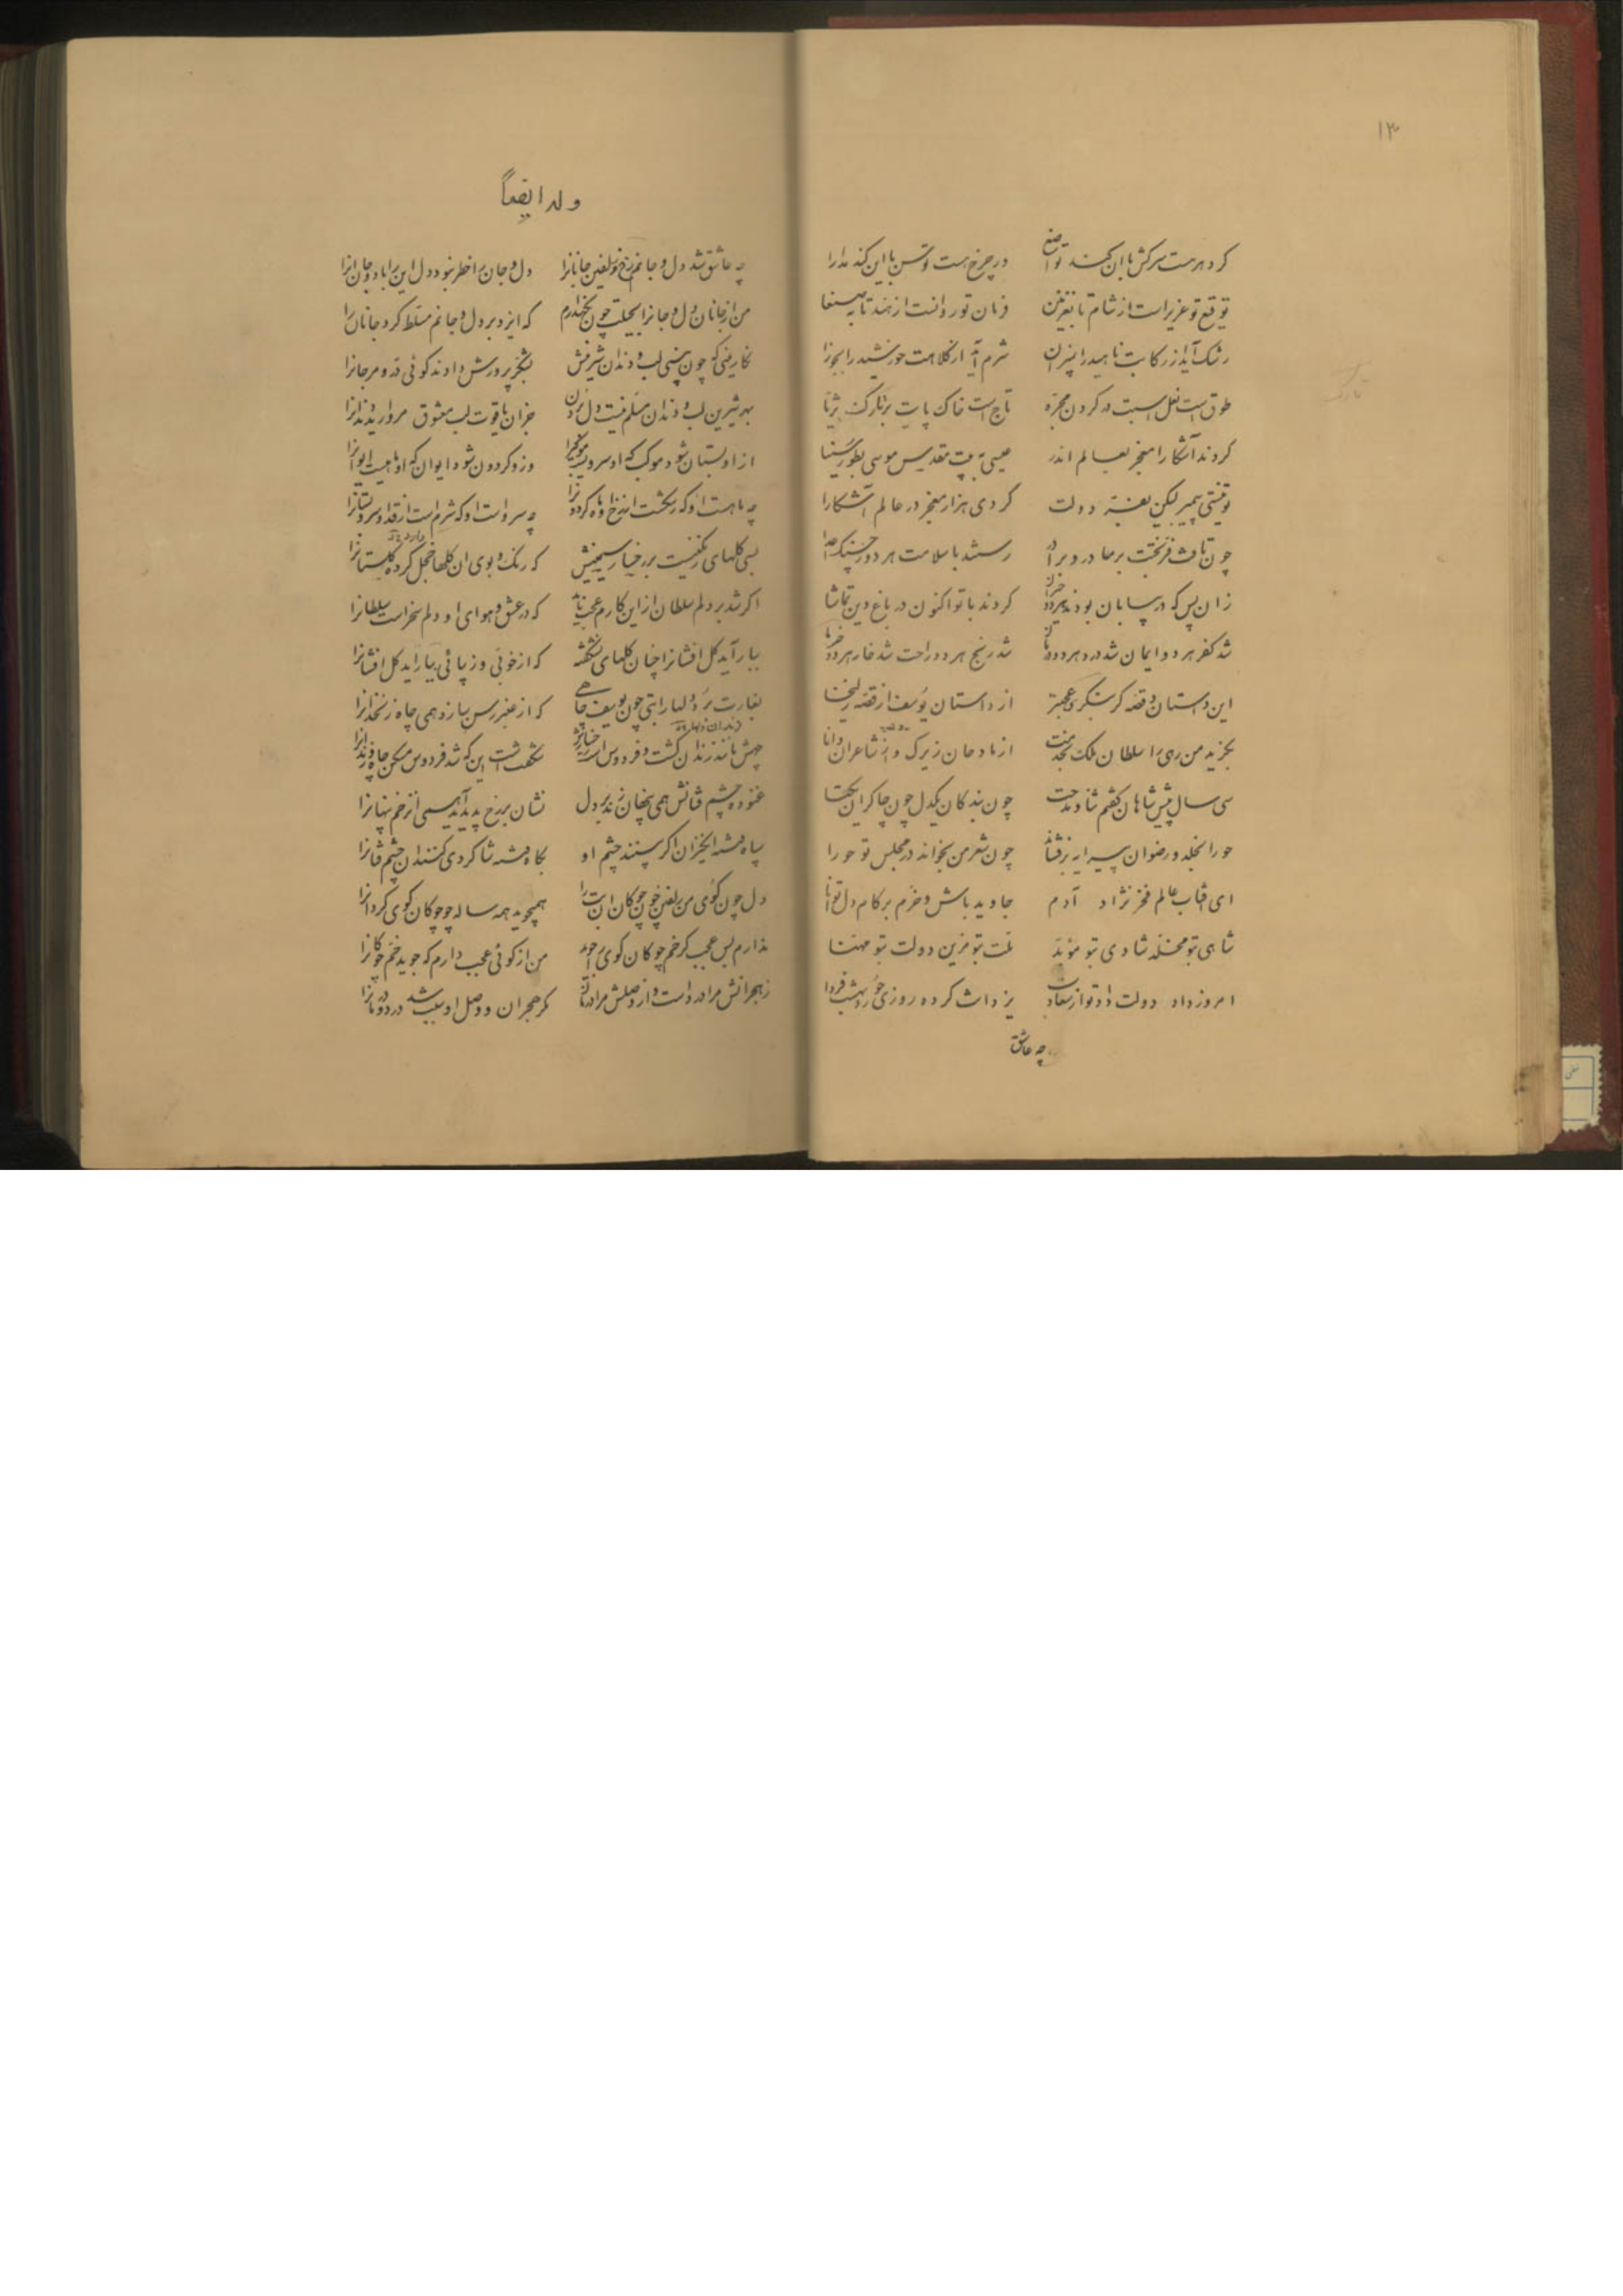 ۱۳
کر دهر هست سرکش با ان کند تواضع    ور چرخ هست توسن با این کند مدارا
توقیع تو عزیز است از شام تا بغزنین    فرمان تو روانست از هند تا بصنعا
رشک آید از رکابت ناهید را بمیزان    شرم آید از کلاهت خورشید را بجوزا
طوق است نعل اسبت در کردن مجره    تاج است خاک پایت بر تارک ثریا
کردند آشکارا معجز بعالم اندر    عیسی به بیت مقدس موسی بطور سینا
تو نیستی پیمبر لیکن بعز دولت    کردی هزار معجز در عالم آشکارا
چون تافت فر بختت بر مادر و برادر    رستند با سلامت هر دو ز چنک اعدا
زان پس که در بیابان بودند هر دو حیران    کردند با تو اکنون در باغ دین تماشا
شد کفر هر دو ایمان شد درد هر دو درمان    شد رنج هر دو راحت شد خار هر دو خرما
این داستان و قصه کر بنکری عجبتر    از داستان یوسف از قصه زلیخا
بکزید من رهی را سلطان ملک بخدمت    از مادحان زیرک وز شاعران دانا
سی سال پیش شاهان کفتم ثنا و مدحت    چون بندکان یکدل چون چاکران یکتا
حورا بخلد و رضوان پیرایه برفشاند    چون شعر من بخواند در مجلس تو حورا
ای افتاب عالم فخر نژاد آدم    جاوید باش و خرم بر کام دل توانا
شاهی بتو مخلد شادی بتو موبد    ملت بتو مزین دولت بتو مهنا
امروز داد دولت داد تو از سعادت    یزدانت کرده روزی حور و بهشت فردا
چه عاشق
وله ایضاً
چه عاشق شد دل و جانم رخ و زلفین جانانرا    دل و جان را خطر نبود دل این را باد و جان انرا
من از جانان دل و جانرا بحیلت چون نکهدارم    که ایزد بر دل و جانم مسلط کرد جانان را
نکارینی که چون بینی لب و دندان شیرینش    بشکر پرورش دادند کوئی در و مرجانرا
بهر شیرین لب و دندان مسلم نیست دل بردن    جز ان یاقوت لب معشوق مروارید دندانرا
از او بستان شود موکب که او سرویست موکبرا    وزو کردون شود ایوان که او ماهیست ایوانرا
چه ماهست او که رشکست از رخ او ماه کردونرا    چه سرو است او که شرم است از قد او سرو بستانرا
بسی کلهای رنکینست بر رخسار سیمینش    که رنک و بوی ان کلها خجل کرده کلستانرا
اکر شد بر دلم سلطان از این کارم عجب ناید    که در عشق و هوای او دلم سخر است سلطانرا
ببار آید کل افشانرا چنان کلهای نشکفته    که از خوبی و زیبائی بیاراید کل افشانرا
بغارت برد دلها را بتی چون یوسف چاهی    که از عنبر رسن سازد همی چاه زنخدانرا
چهش مانند زندان کشت و فردوس است رخسارش    شکفت است این که شد فردوس مسکن چاه و زندانرا
غنوده چشم فتانش همی پنهان زند بر دل    نشان بر رخ پدید آید همی از زخم پنهانرا
سپاه فتنه انکیزان اکر بینند چشم او    بکاه فتنه شاکردی کنند ان چشم فتانرا
دل چون کوی من زلفین چون چوکان ان بت را    همیجوید همه ساله چو چوکان کوی کردانرا
ندارم بس عجب کر خم چوکان کوی را جوید    من از کوئی عجب دارم که جوید خم چوکانرا
ز هجرانش مرا درد است و از وصلش مرا درمان    کر هجران و وصل او سبب شد درد و درمانرا